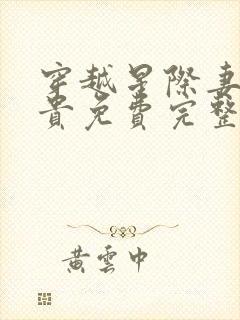 穿越星際妻
貴免費完整
黃雲中